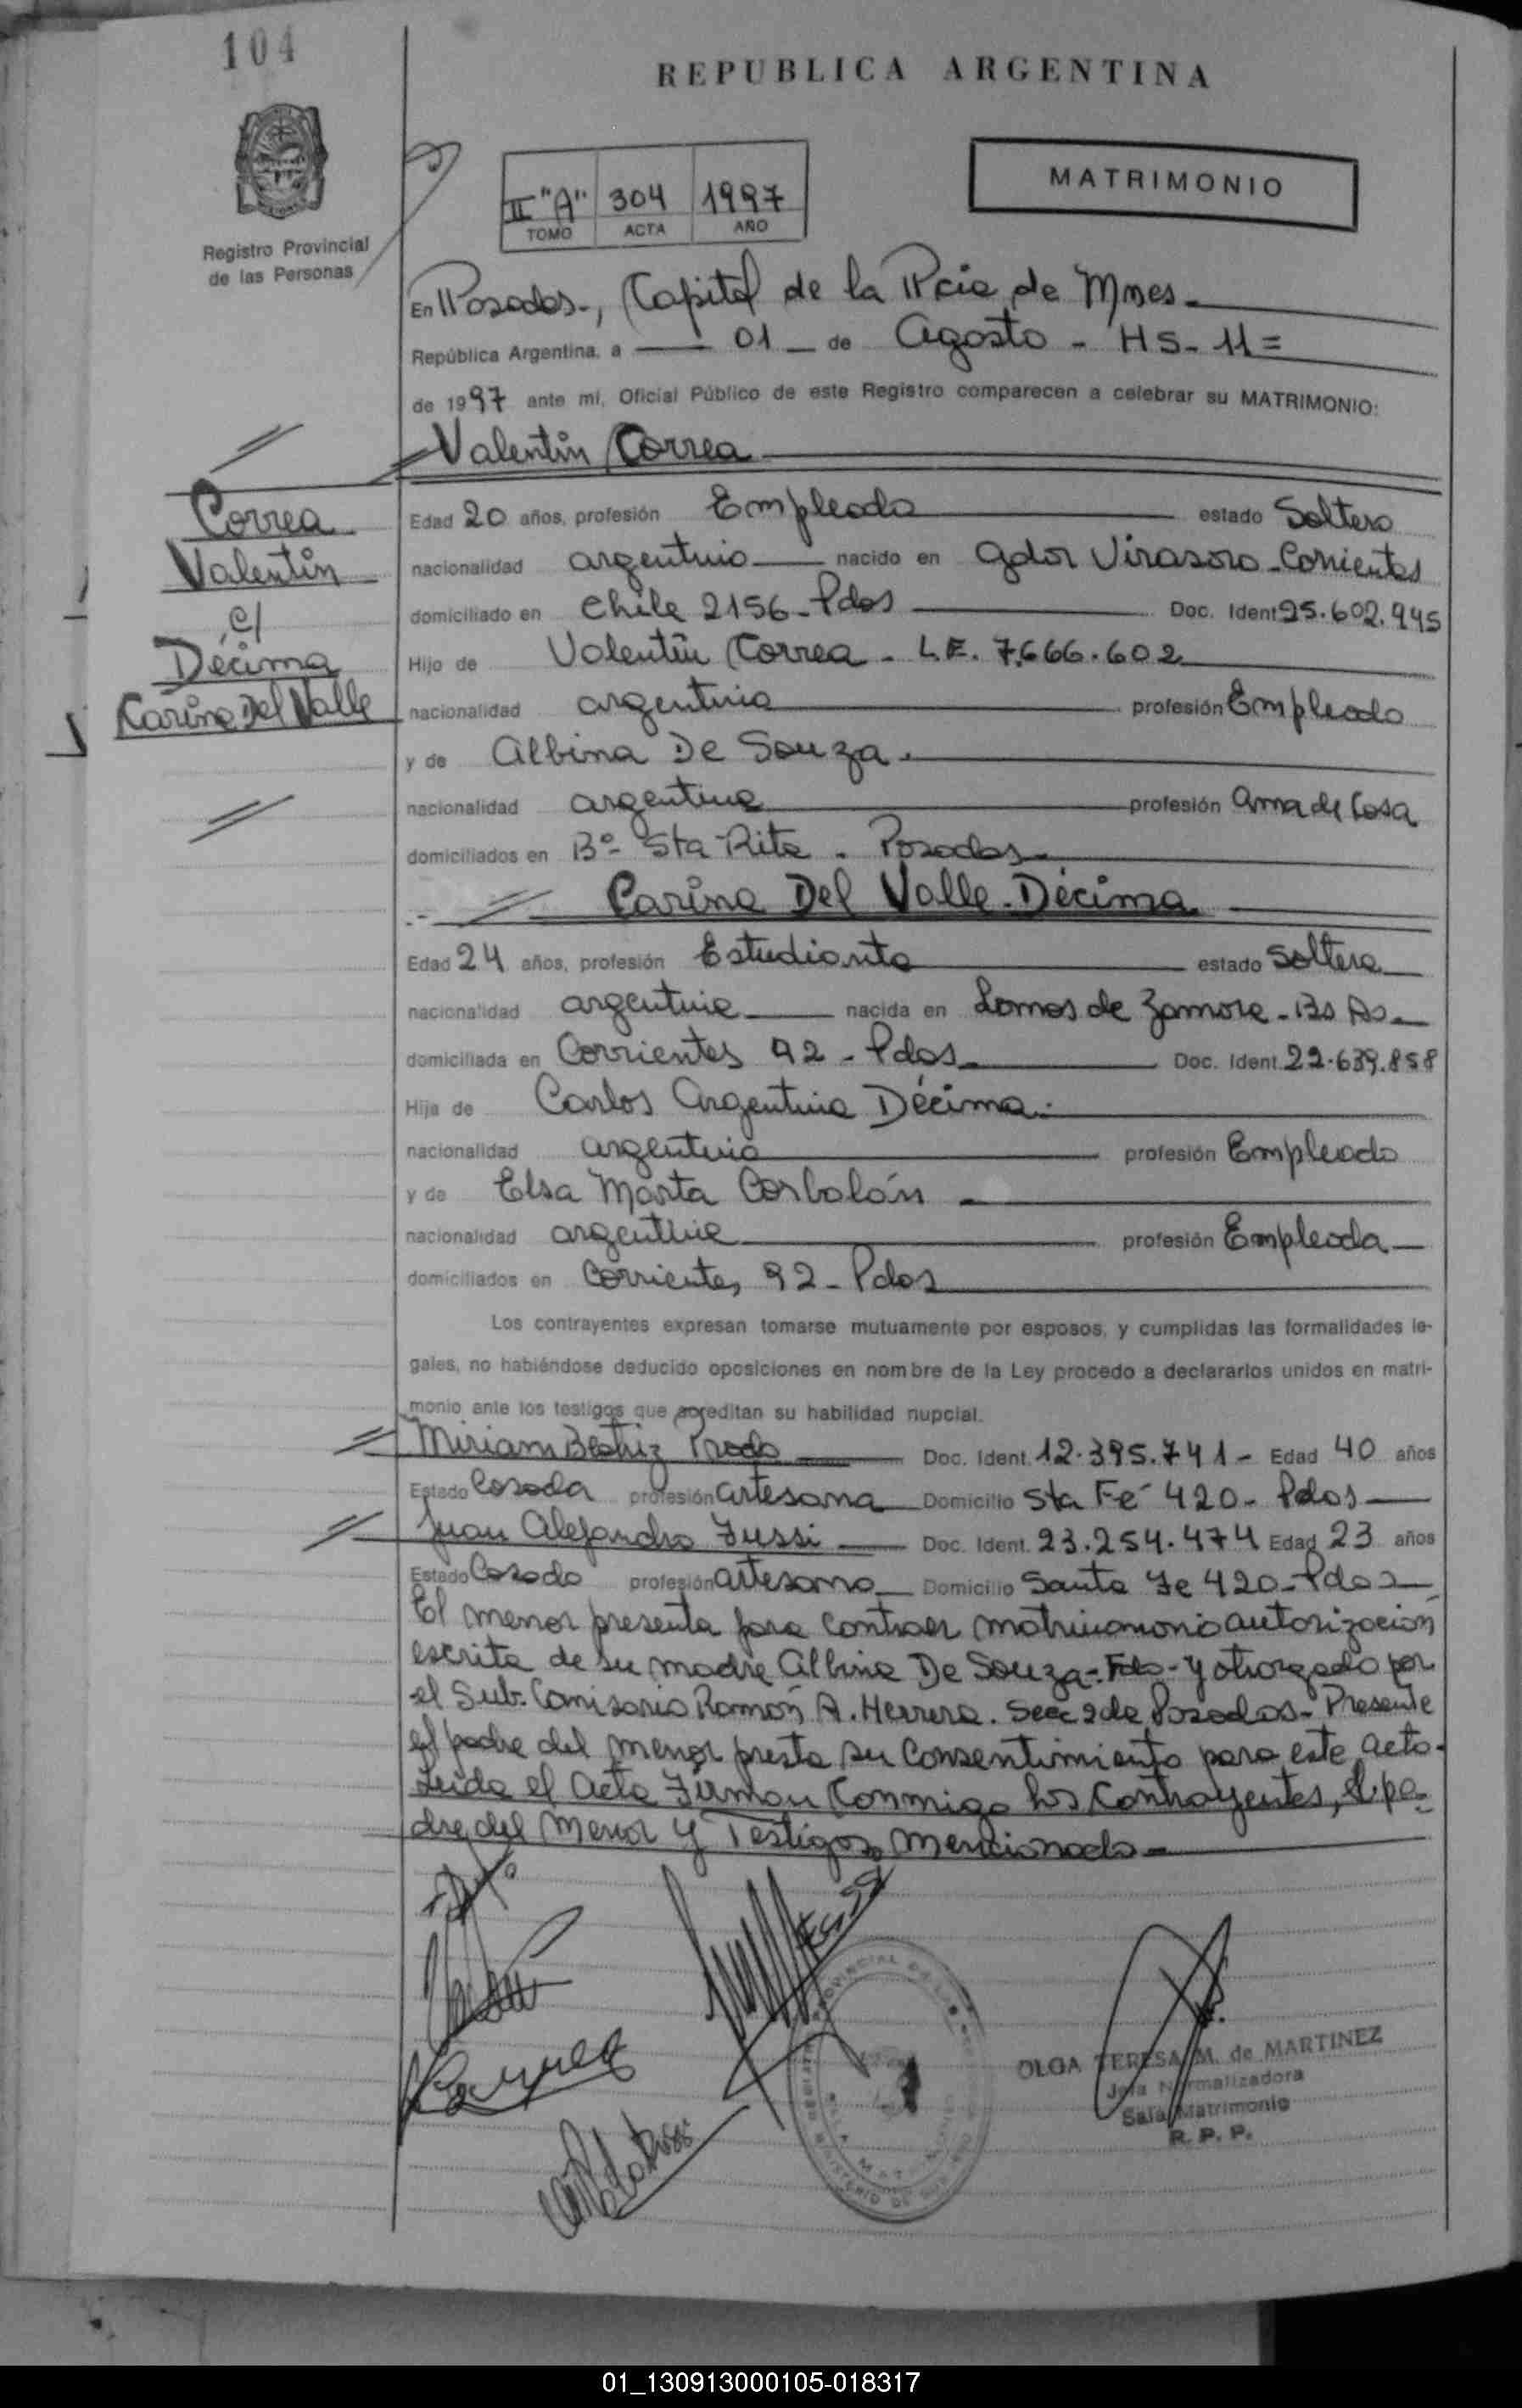 104
REPUBLICA ARGENTINA
Registro Provincial
de las Personas
II "A" 304 1997
TOMO ACTA AÑO
MATRIMONIO
En Posadas-, Capital de la Pcia de Mnes-
República Argentina, a 01 de Agosto - HS- 11=
de 1997 ante mí, Oficial Público de este Registro comparecen a celebrar su MATRIMONIO:
Valentín Correa
Correa
Valentín
c/
Décima
Carina Del Valle
Edad 20 años, profesión Empleado estado Soltero
nacionalidad argentino nacido en Gdor Virasoro - Corrientes
domiciliado en Chile 2156- Pdas Doc. Ident 25.602.945
Hijo de Valentín Correa - L.E. 7.666.602
nacionalidad argentino profesión Empleado
y de Albina De Souza.
nacionalidad argentina profesión Ama de Casa
domiciliados en Bº Sta Rita - Posadas-
Carina Del Valle Décima
Edad 24 años, profesión Estudiante estado Soltera
nacionalidad argentina nacida en Lomas de Zamora - Bs As-
domiciliada en Corrientes 92 - Pdas Doc. Ident. 22.639.858
Hija de Carlos Argentino Décima.
nacionalidad argentino profesión Empleado
y de Elsa Marta Corbalán
nacionalidad argentina profesión Empleada
domiciliados en Corrientes 92 - Pdas
Los contrayentes expresan tomarse mutuamente por esposos, y cumplidas las formalidades le-
gales, no habiéndose deducido oposiciones en nombre de la Ley procedo a declararlos unidos en matri-
monio ante los testigos que acreditan su habilidad nupcial.
Miriam Beatriz Prado Doc. Ident. 12.395.741 - Edad 40 años
Estado Casada profesión artesana Domicilio Sta Fé 420- Pdas
Juan Alejandro Fussi Doc. Ident. 23.254.474 Edad 23 años
Estado Casado profesión artesano Domicilio Santa Fe 420- Pdas
El menor presenta para contraer matrimonio autorización
escrita de su madre Albina De Souza - Fdo - y otorgado por
el Sub. Comisario Ramón A. Herrera. Secc 2 de Posadas - Presente
el padre del menor presta su Consentimiento para este acto.
Leída el Acta Firman Conmigo los Contrayentes, el pa-
dre del Menor y Testigos mencionado-
OLGA TERESA M. de MARTINEZ
Jefa Normalizadora
Sala Matrimonio
R. P. P.
01_130913000105-018317